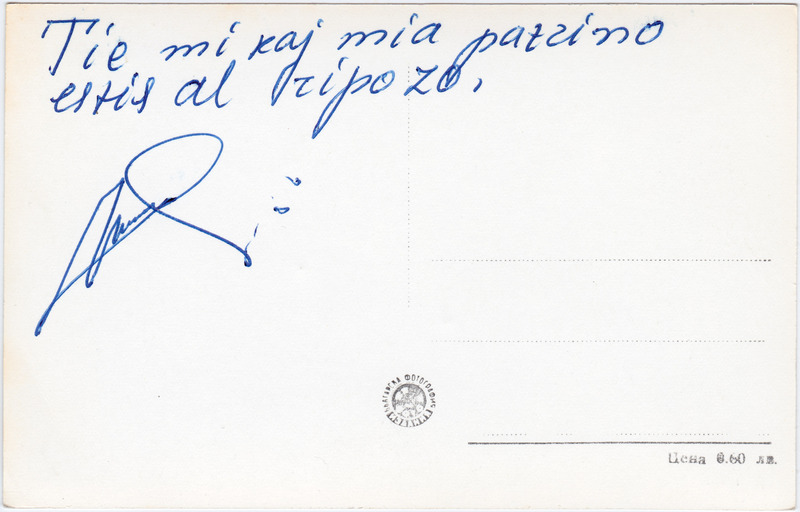 Tie mi kaj mia patrino
estis al ripozo,
БЪЛГАРСКА ФОТОГРАФИЯ
Цена 0.60 лв.